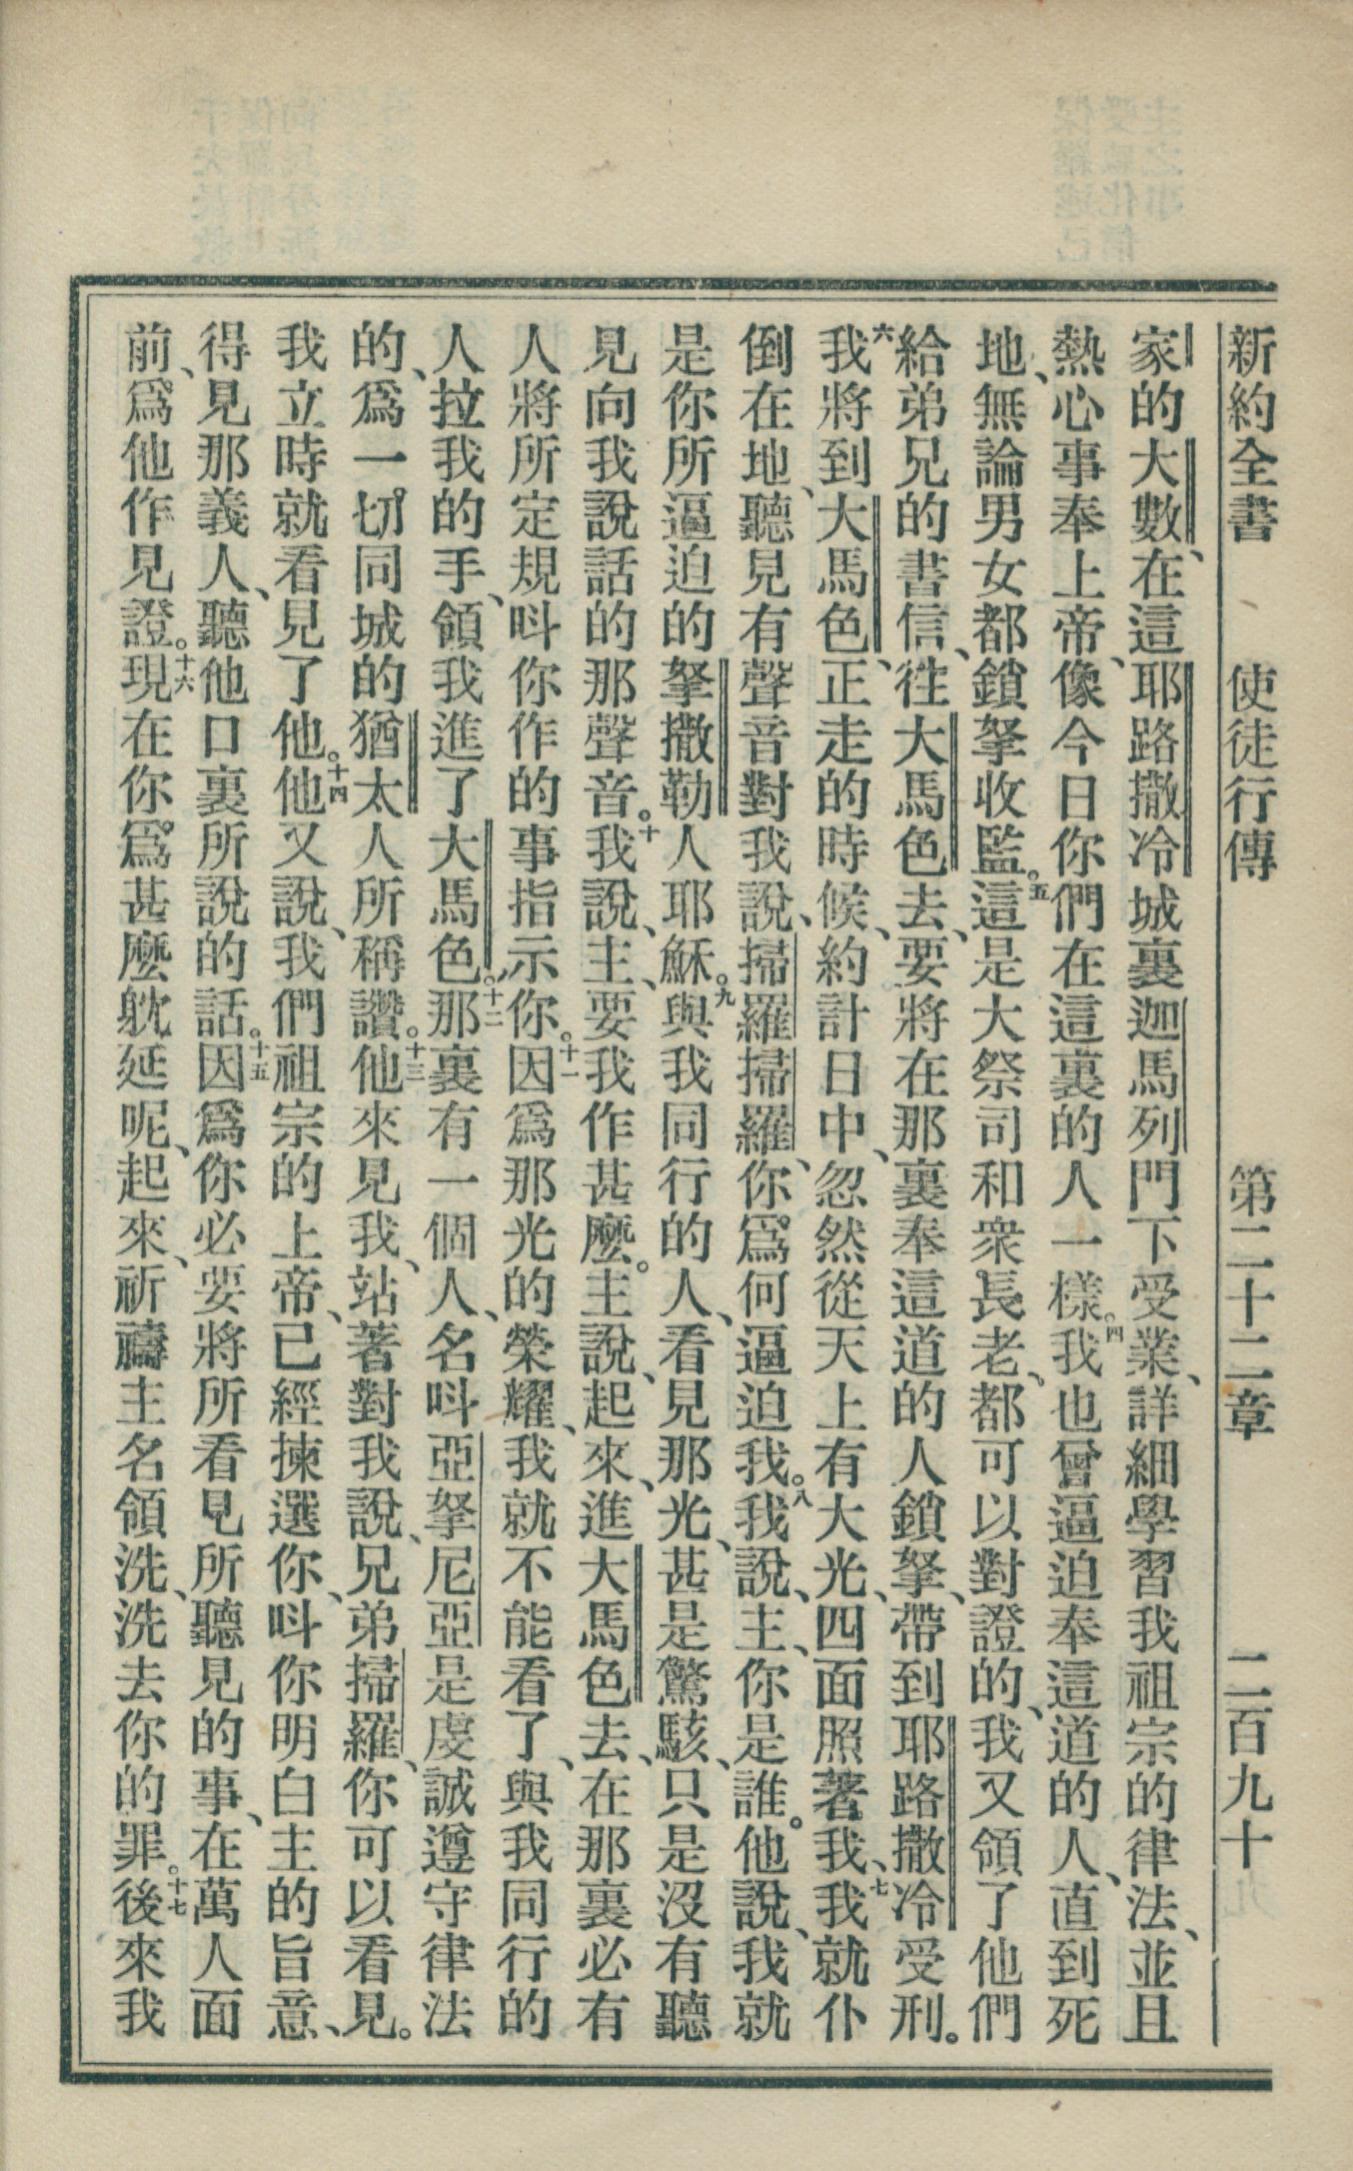 新約全書 使徒行傳 第二十二章 二百九十
家的大數、在這耶路撒冷城裏迦馬列門下受業、詳細學習我祖宗的律法、並且
熱心事奉上帝、像今日你們在這裏的人一樣。四我也曾逼迫奉這道的人、直到死
地、無論男女都鎖拏收監。五這是大祭司和衆長老、都可以對證的、我又領了他們
給弟兄的書信、徃大馬色去、要將在那裏奉這道的人鎖拏、帶到耶路撒冷受刑。
六我將到大馬色、正走的時候、約計日中、忽然從天上有大光、四面照著我、七我就仆
倒在地、聽見有聲音對我說、掃羅掃羅、你爲何逼迫我。八我說、主、你是誰。他說、我就
是你所逼迫的拏撒勒人耶穌。九與我同行的人、看見那光、甚是驚駭、只是沒有聽
見向我說話的那聲音。十我說、主、要我作甚麼。主說、起來、進大馬色去、在那裏必有
人將所定規呌你作的事指示你。十一因爲那光的榮耀、我就不能看了、與我同行的
人拉我的手、領我進了大馬色。十二那裏有一個人、名呌亞拏尼亞是虔誠遵守律法
的、爲一切同城的猶太人所稱讚。十三他來見我、站著對我說、兄弟掃羅、你可以看見。
我立時就看見了他。十四他又說、我們祖宗的上帝、已經揀選你、呌你明白主的旨意、
得見那義人、聽他口裏所說的話。十五因爲你必要將所看見所聽見的事、在萬人面
前、爲他作見證。十六現在你爲甚麼躭延呢、起來、祈禱主名領洗、洗去你的罪。十七後來我